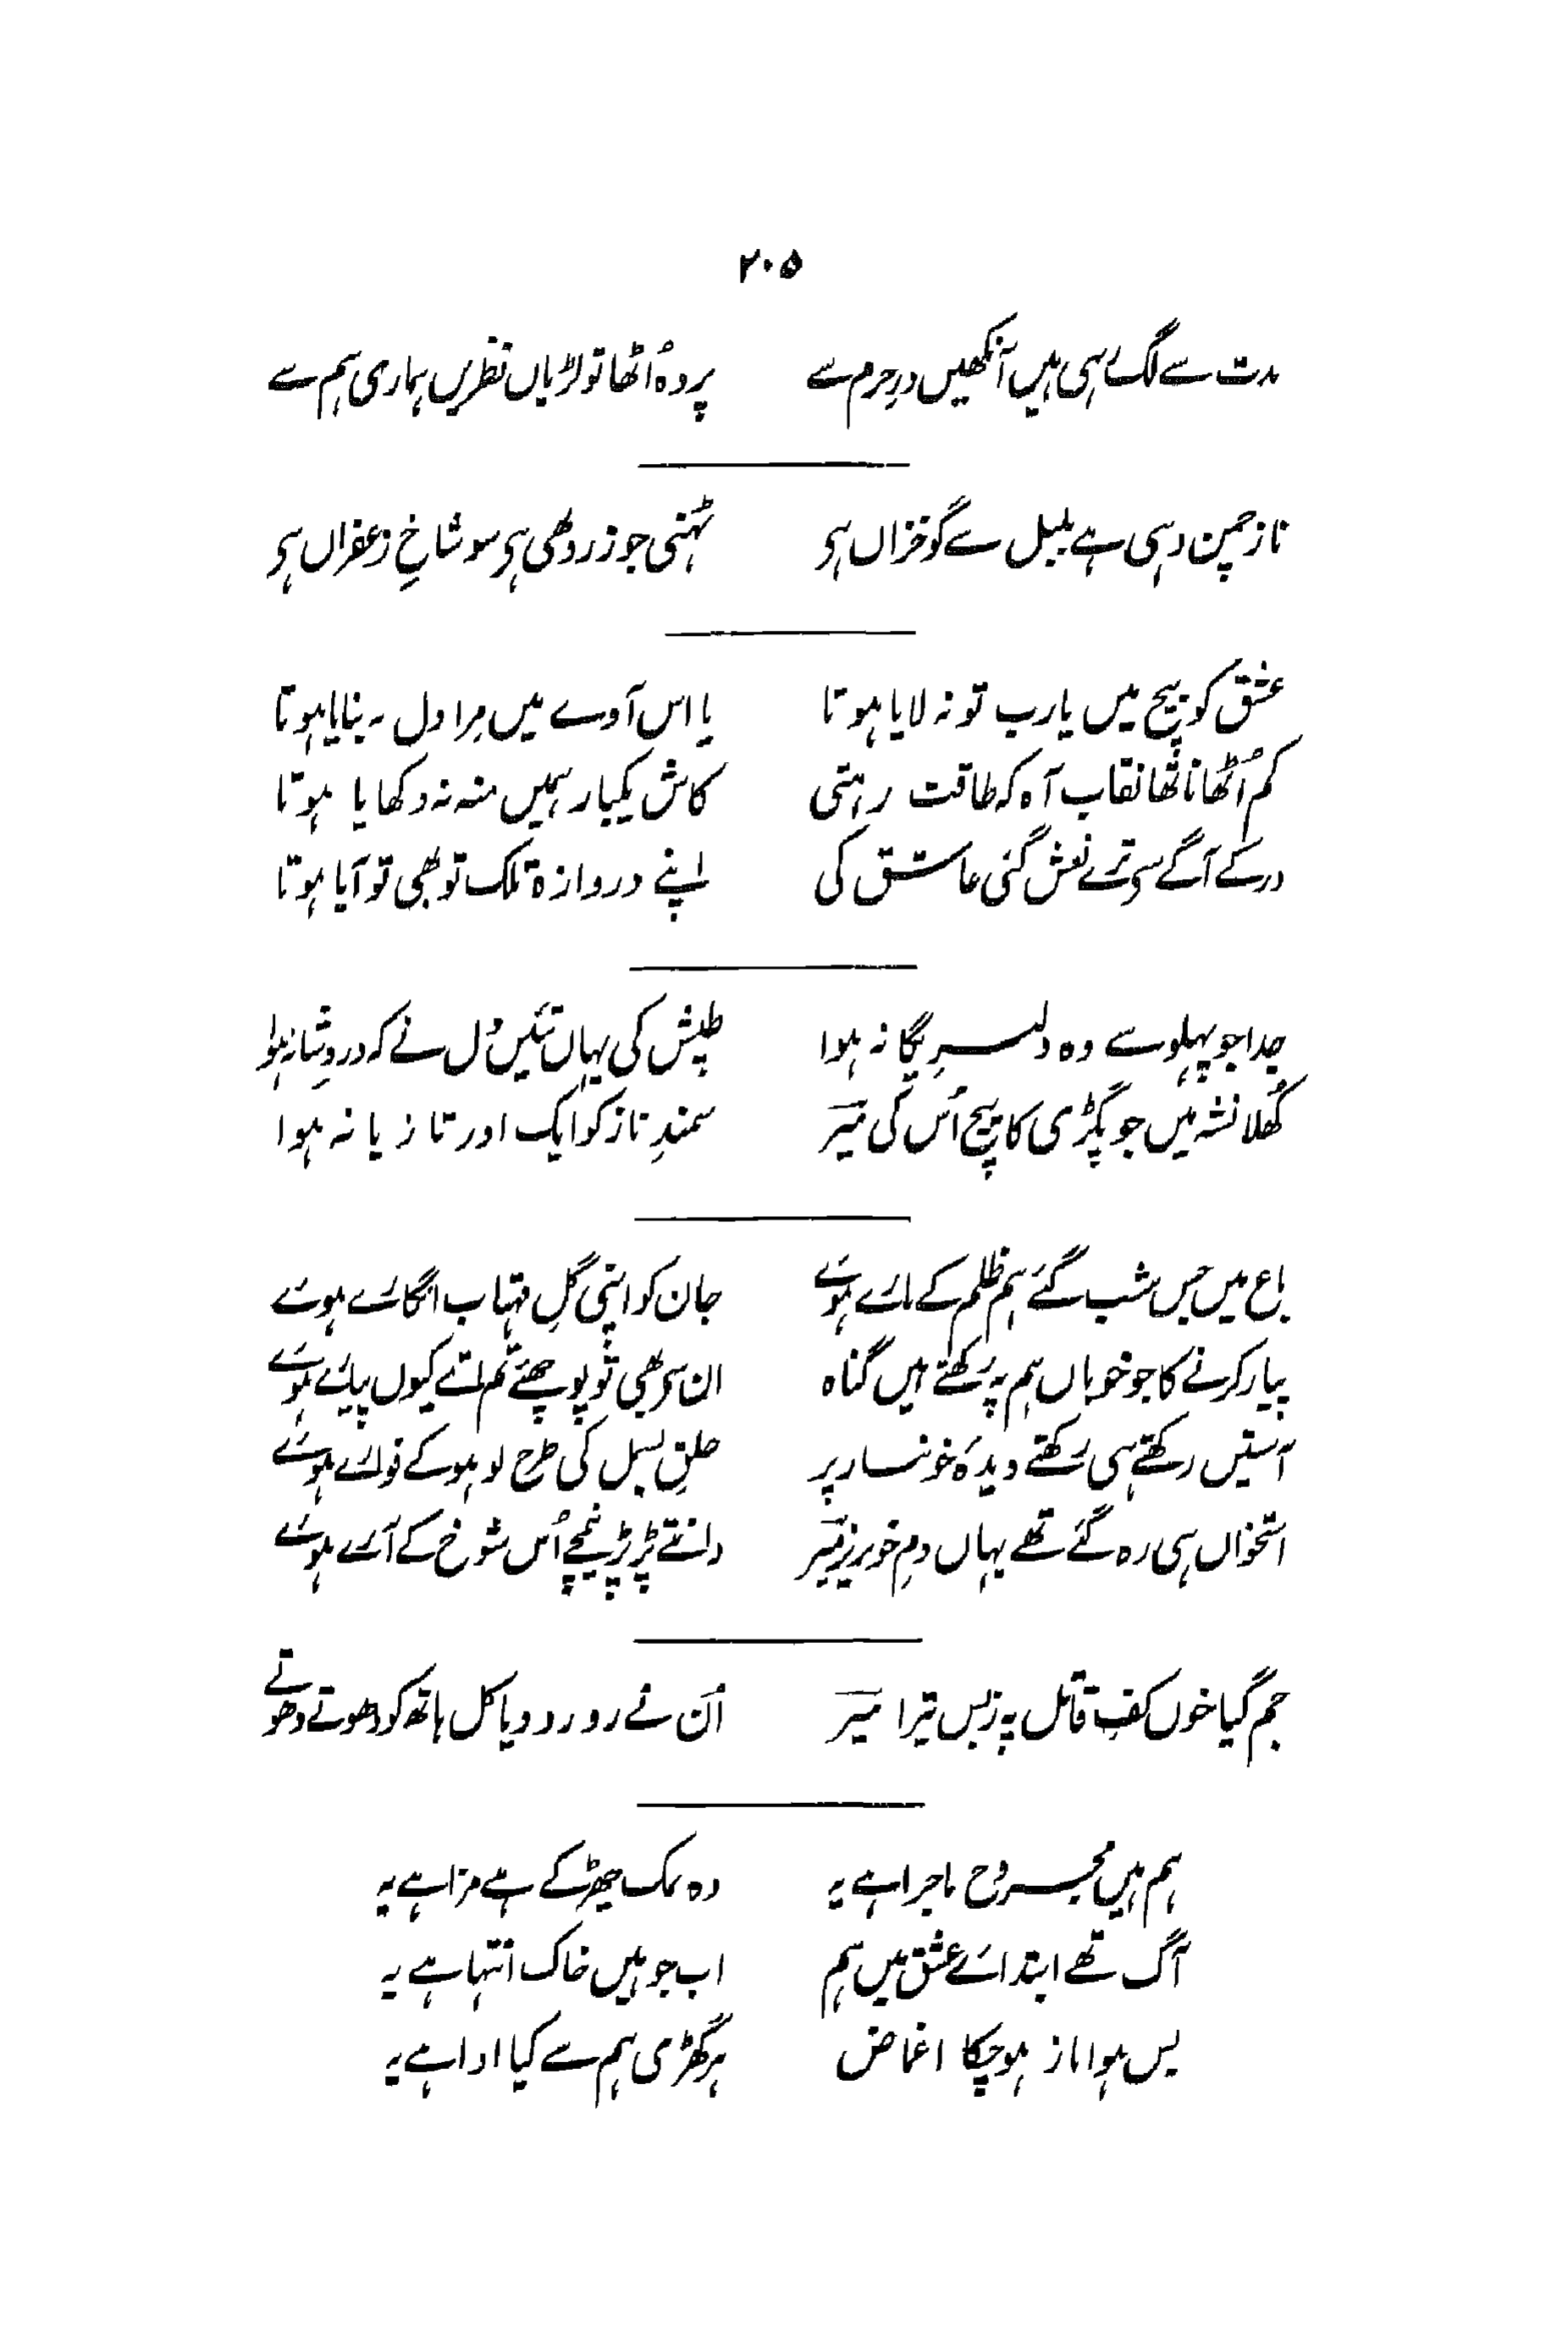 ۲۰۵
مدت سے لگ رہی ہیں آنکھیں درِ حرم سے پردہ اُٹھا تو لڑیاں نظریں ہماری ہم سے
نازِ چمن وہی ہے بلبل سے گو خزاں ہی ٹہنی جو زرد بھی ہی سو شاخِ زعفراں ہی
عشق کو بیچ میں یارب تو نہ لایا ہوتا یا اس آوے میں مرا دل نہ بنایا ہوتا
کم اُٹھانا تھا نقاب آہ کہ طاقت رہتی کاش یکبار ہمیں منہ نہ دکھایا ہوتا
در کے آگے سی ترے نعش گئی عاشق کی اپنے دروازہ تلک تو بھی تو آیا ہوتا
جدا جو پہلو سے وہ دلبرِ یگانہ ہوا طپش کی یہاں تئیں دل نے کہ دردِ شانہ ہوا
کُھلا نشہ میں جو پگڑی کا پیچ اُس کی میرؔ سمندِ ناز کو ایک اور تازیانہ ہوا
باغ میں جس شب گئے ہم ظلم کے مارے ہوئے جان کو اپنی گلِ مہتاب انگارے ہوئے
پیار کرنے کا جو خوباں ہم پہ رکھتے ہیں گناہ ان سی بھی تو پوچھئے تم اتنے کیوں پیارے ہوئے
آستیں رکھتے ہی رکھتے دیدۂ خونبار پر حلقِ بسمل کی طرح لوہو کے فوارے ہوئے
استخواں ہی رہ گئے تھے یہاں دمِ خونریز میرؔ دانتے پڑ پڑ نیمچے اُس شوخ کے آرے ہوئے
جم گیا خوں کفِ قاتل پہ زبس تیرا میرؔ اُن نے رو رو دیا کل ہاتھ کو دھوتے دھوتے
ہم ہیں مجروح ماجرا ہے یہ وہ نمک چھڑکے ہے مزا ہے یہ
آگ تھے ابتدائے عشق میں ہم اب جو ہیں خاک انتہا ہے یہ
بس ہوا ناز ہو چکا اغماض ہر گھڑی ہم سے کیا ادا ہے یہ